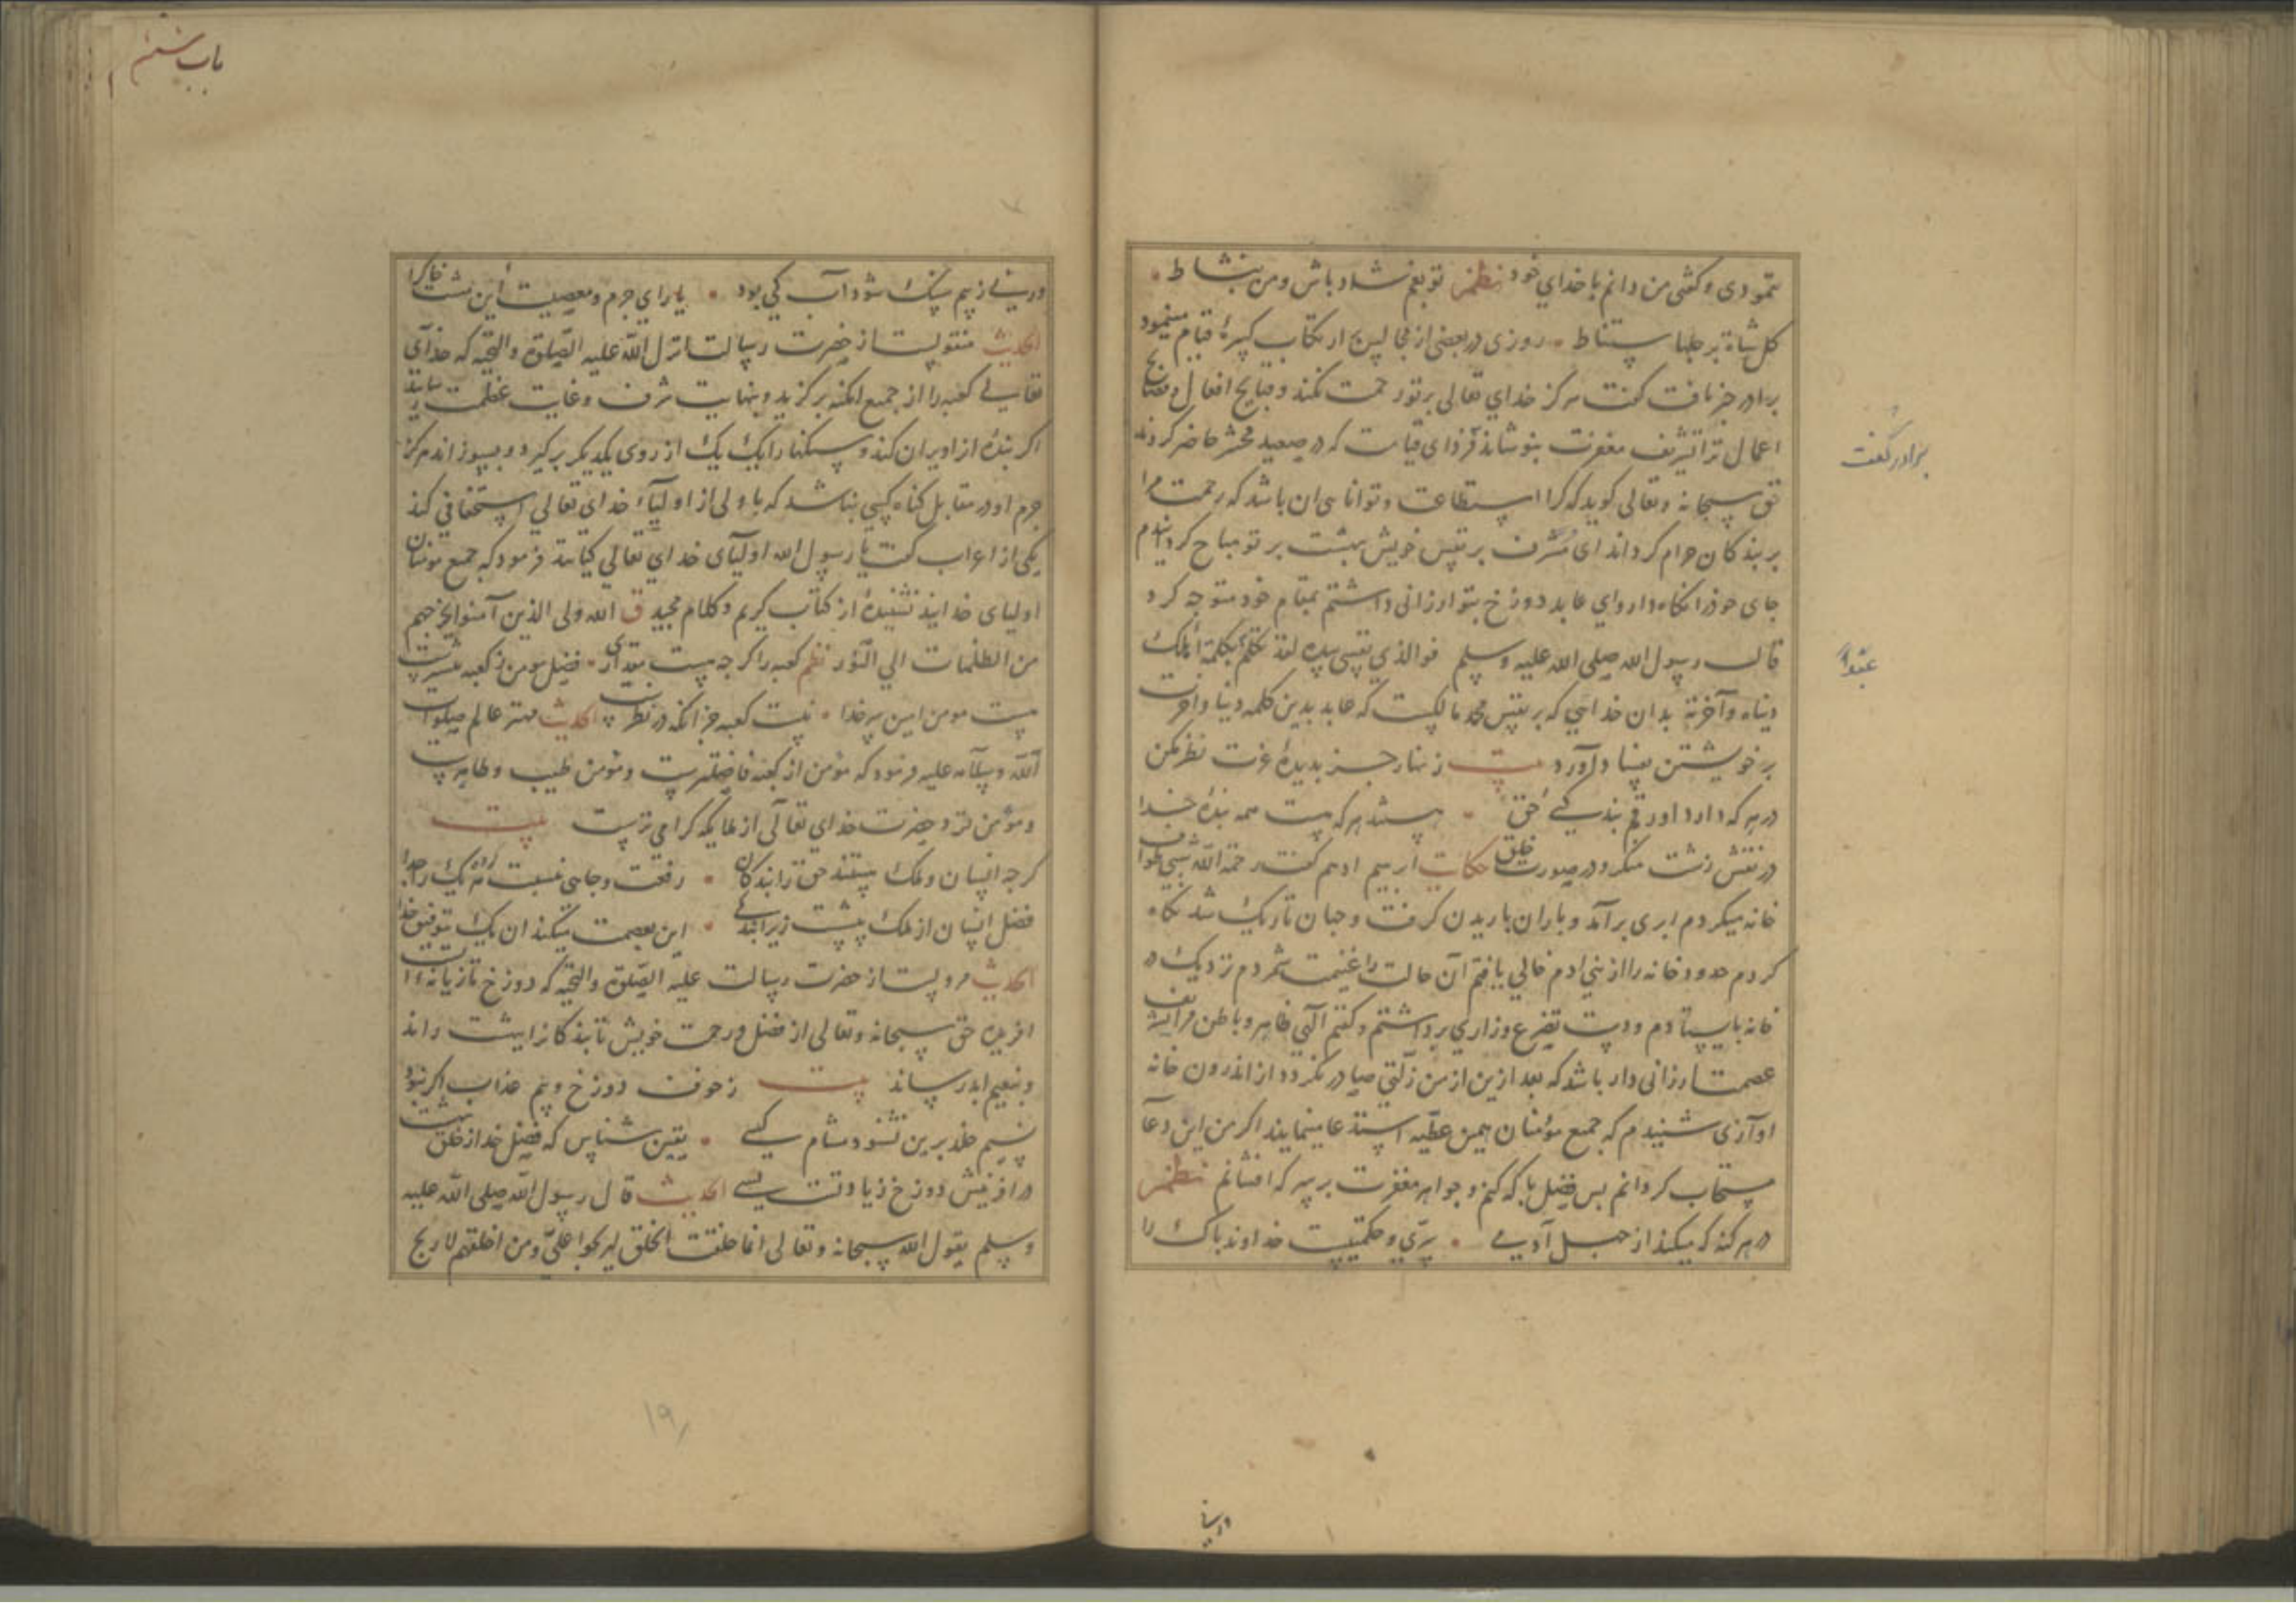 تو بغم شاد باش و من بنشاط
کل شاة برجلها ستناط روزی در بعضی از مجالس ارتکاب کبیرهٔ قیام مینمود
برادر خبر یافت کفت هرکز خدای تعالی بر تو رحمت نکند و قبایح افعال و فضایح
اعمال ترا تشریف مغفرت نپوشاند فردای قیامت که در صعید محشر حاضر کردند
حق سبحانه و تعالی کوید که کرا استطاعت و توانای ان باشد که رحمت مرا
بر بندکان حرام کرداند ای مسرف بر نفس خویش بهشت بر تو مباح کردانیدم
جای خود را نکاه دار و ای عابد دوزخ بتو ارزانی داشتم بمقام خود متوجه کرد
قال رسول الله صلی الله علیه وسلم فوالذی نفسی بیده لقد تکلم بکلمة اهلک
دنیاه و آخرته بدان خدایی که بر نفس محمد مالکست که عابد بدین کلمه دنیا و اخرت
بر خویشتن بفساد آورد بیت زنهار جز بدیدهٔ عزت نظر مکن
در هر که دارد او رقم بندکی حق هستند هر که هست همه بندهٔ خدا
در نقش زشت منکر و در صورت خلق حکایت ابرهیم ادهم کفت رحمة الله شبی طواف
خانه میکردم ابری برآمد و باران باریدن کرفت و جهان تاریک شد نکاه
کردم حدود خانه را از بنی ادم خالی یافتم آن حالت را غنیمت شمردم نزدیک در
خانه بایستادم و دست تضرع و زاری برداشتم و کفتم الهی ظاهر و باطن مرا تشریف
عصمت ارزانی دار باشد که بعد ازین از من زلتی صادر نکردد از اندرون خانه
اوازی شنیدم که جمیع مؤمنان همین عطیه استدعا مینمایند اکر من این دعا
مستجاب کردانم پس فضل با که کنم و جواهر مغفرت بر سر که افشانم نظم
در هر کنه که میکند از جهل آدمی سری و حکمتیست خداوند پاک را
برادر کفت
درینا
باب ششم
یارای جرم و معصیت این مشت خاک را
الحدیث منقولست از حضرت رسالت انزل الله علیه الصلوة والتحیه که خدای
تعالی کعبه را از جمیع امکنه برکزید و بنهایت شرف و غایت عظمت رسانید
اکر بندهٔ از او ویران کند و سنکها را یک یک از روی یکدیکر برکیرد و بسوزاند هرکز
جرم او در مقابل کناه کسی نباشد که با ولی از اولیاء خدای تعالی استخفافی کند
یکی از اعراب کفت یا رسول الله اولیای خدای تعالی کیانند فرمود که جمیع مومنان
اولیای خدایند نشنیدهٔ از کتاب کریم و کلام مجید ق الله ولی الذین آمنوا یخرجهم
من الظلمات الی النور نظم کعبه را کرچه هست مقداری فضل مومن ز کعبه بیشترست
هست مومن امین سر خدا نیست کعبه جز آنکه در نظرست الحدیث مهتر عالم صلوات
الله و سلامه علیه فرمود که مؤمن از کعبه فاضلترست و مؤمن طیب و طاهرست
و مؤمن نزد حضرت خدای تعالی از ملایکه کرامی ترست بیت
کرچه انسان و ملک هستند حق را بندکان رفعت و جاهی نسبت هر یک را جدا
فضل انسان از ملک بیشست زیرا بندکی این بعصمت میکند ان یک بتوفیق خدا
الحدیث مرویست از حضرت رسالت علیه الصلوة والتحیه که دوزخ تازیانه ایست
افریده حق سبحانه و تعالی از فضل و رحمت خویش تا بندکانرا ببهشت راند
و بنعیم ابد رساند بیت ز خوف دوزخ و بیم عذاب اکر نبود
نسیم خلد برین نشنود مشام کسی یقین شناس که فضل خدا از خلق بهشت
در افرینش دوزخ زیادتست بسی الحدیث قال رسول الله صلی الله علیه
وسلم یقول الله سبحانه وتعالی انما خلقت الخلق لیربحوا علی ومن اخلقهم لاربح
۱۹